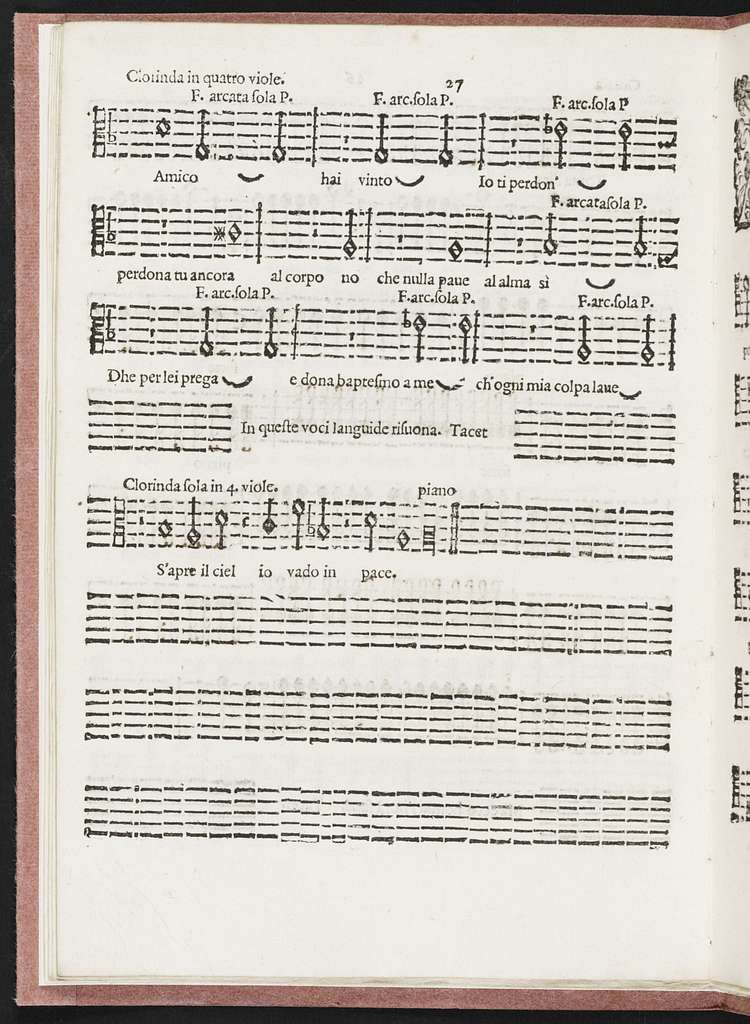 Clorinda in quatro viole.
27
F. arcata sola P. F. arc.sola P. F. arc.sola P
Amico hai vinto Io ti perdon'
F. arcatasola P.
perdona tu ancora al corpo no che nulla paue al alma si
F. arc.sola P. F.arc.sola P. F.arc.sola P.
Dhe per lei prega e dona baptesmo a me ch'ogni mia colpa laue
In queste voci languide risuona. Tacet
Clorinda sola in 4. viole. piano
S'apre il ciel io vado in pace.